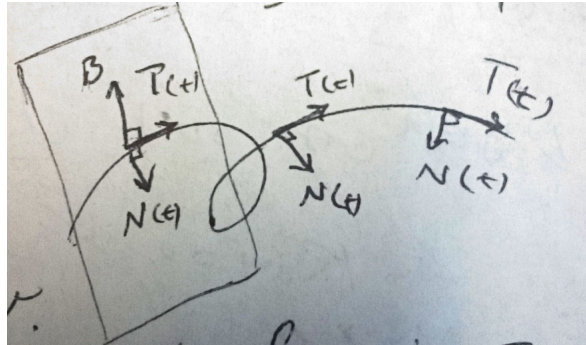 B T(t) T(t) T(t)
N(t) N(t) N(t)